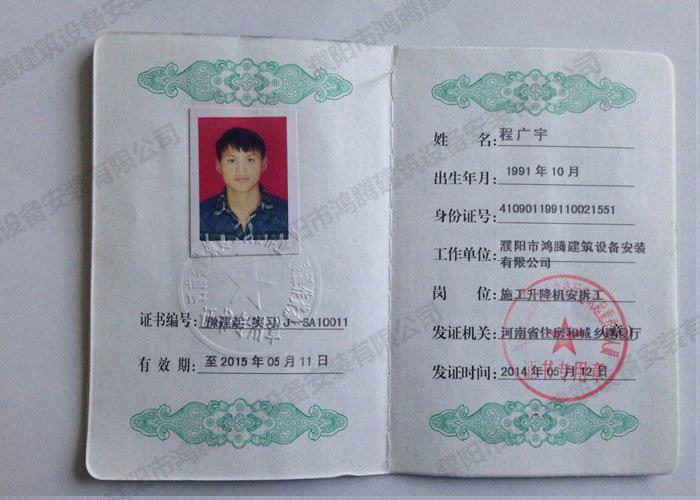 证书编号:豫建起(实习)J-SA10011
有 效 期:至 2015 年 05 月 11 日
姓 名:程广宇
出生年月:1991 年 10 月
身份证号:410901199110021551
工作单位:濮阳市鸿腾建筑设备安装
有限公司
岗 位:施工升降机安拆工
发证机关:河南省住房和城乡建设厅
(章)
发证时间:2014 年 05 月 12 日
证书专用章
濮阳市鸿腾建筑设备安装有限公司